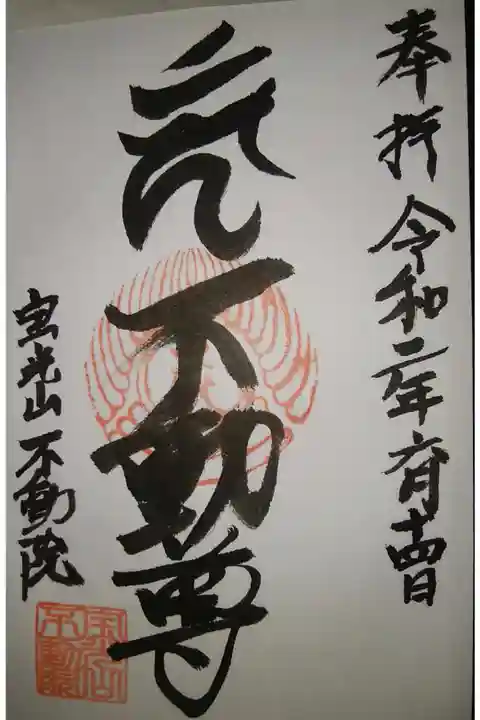 奉拝 令和二年六月十四日
不動尊
宝光山 不動院
宝光山
不動院